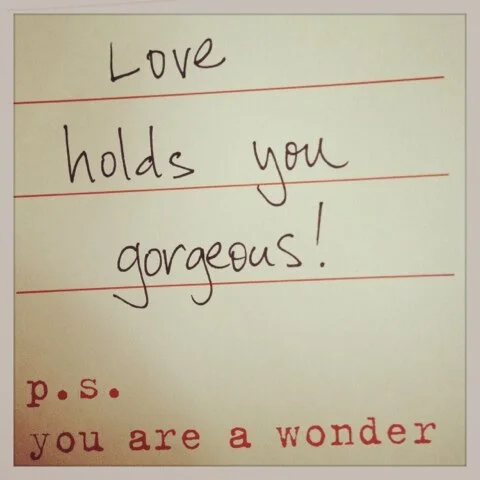 Love
holds you
gorgeous!
p.s.
you are a wonder